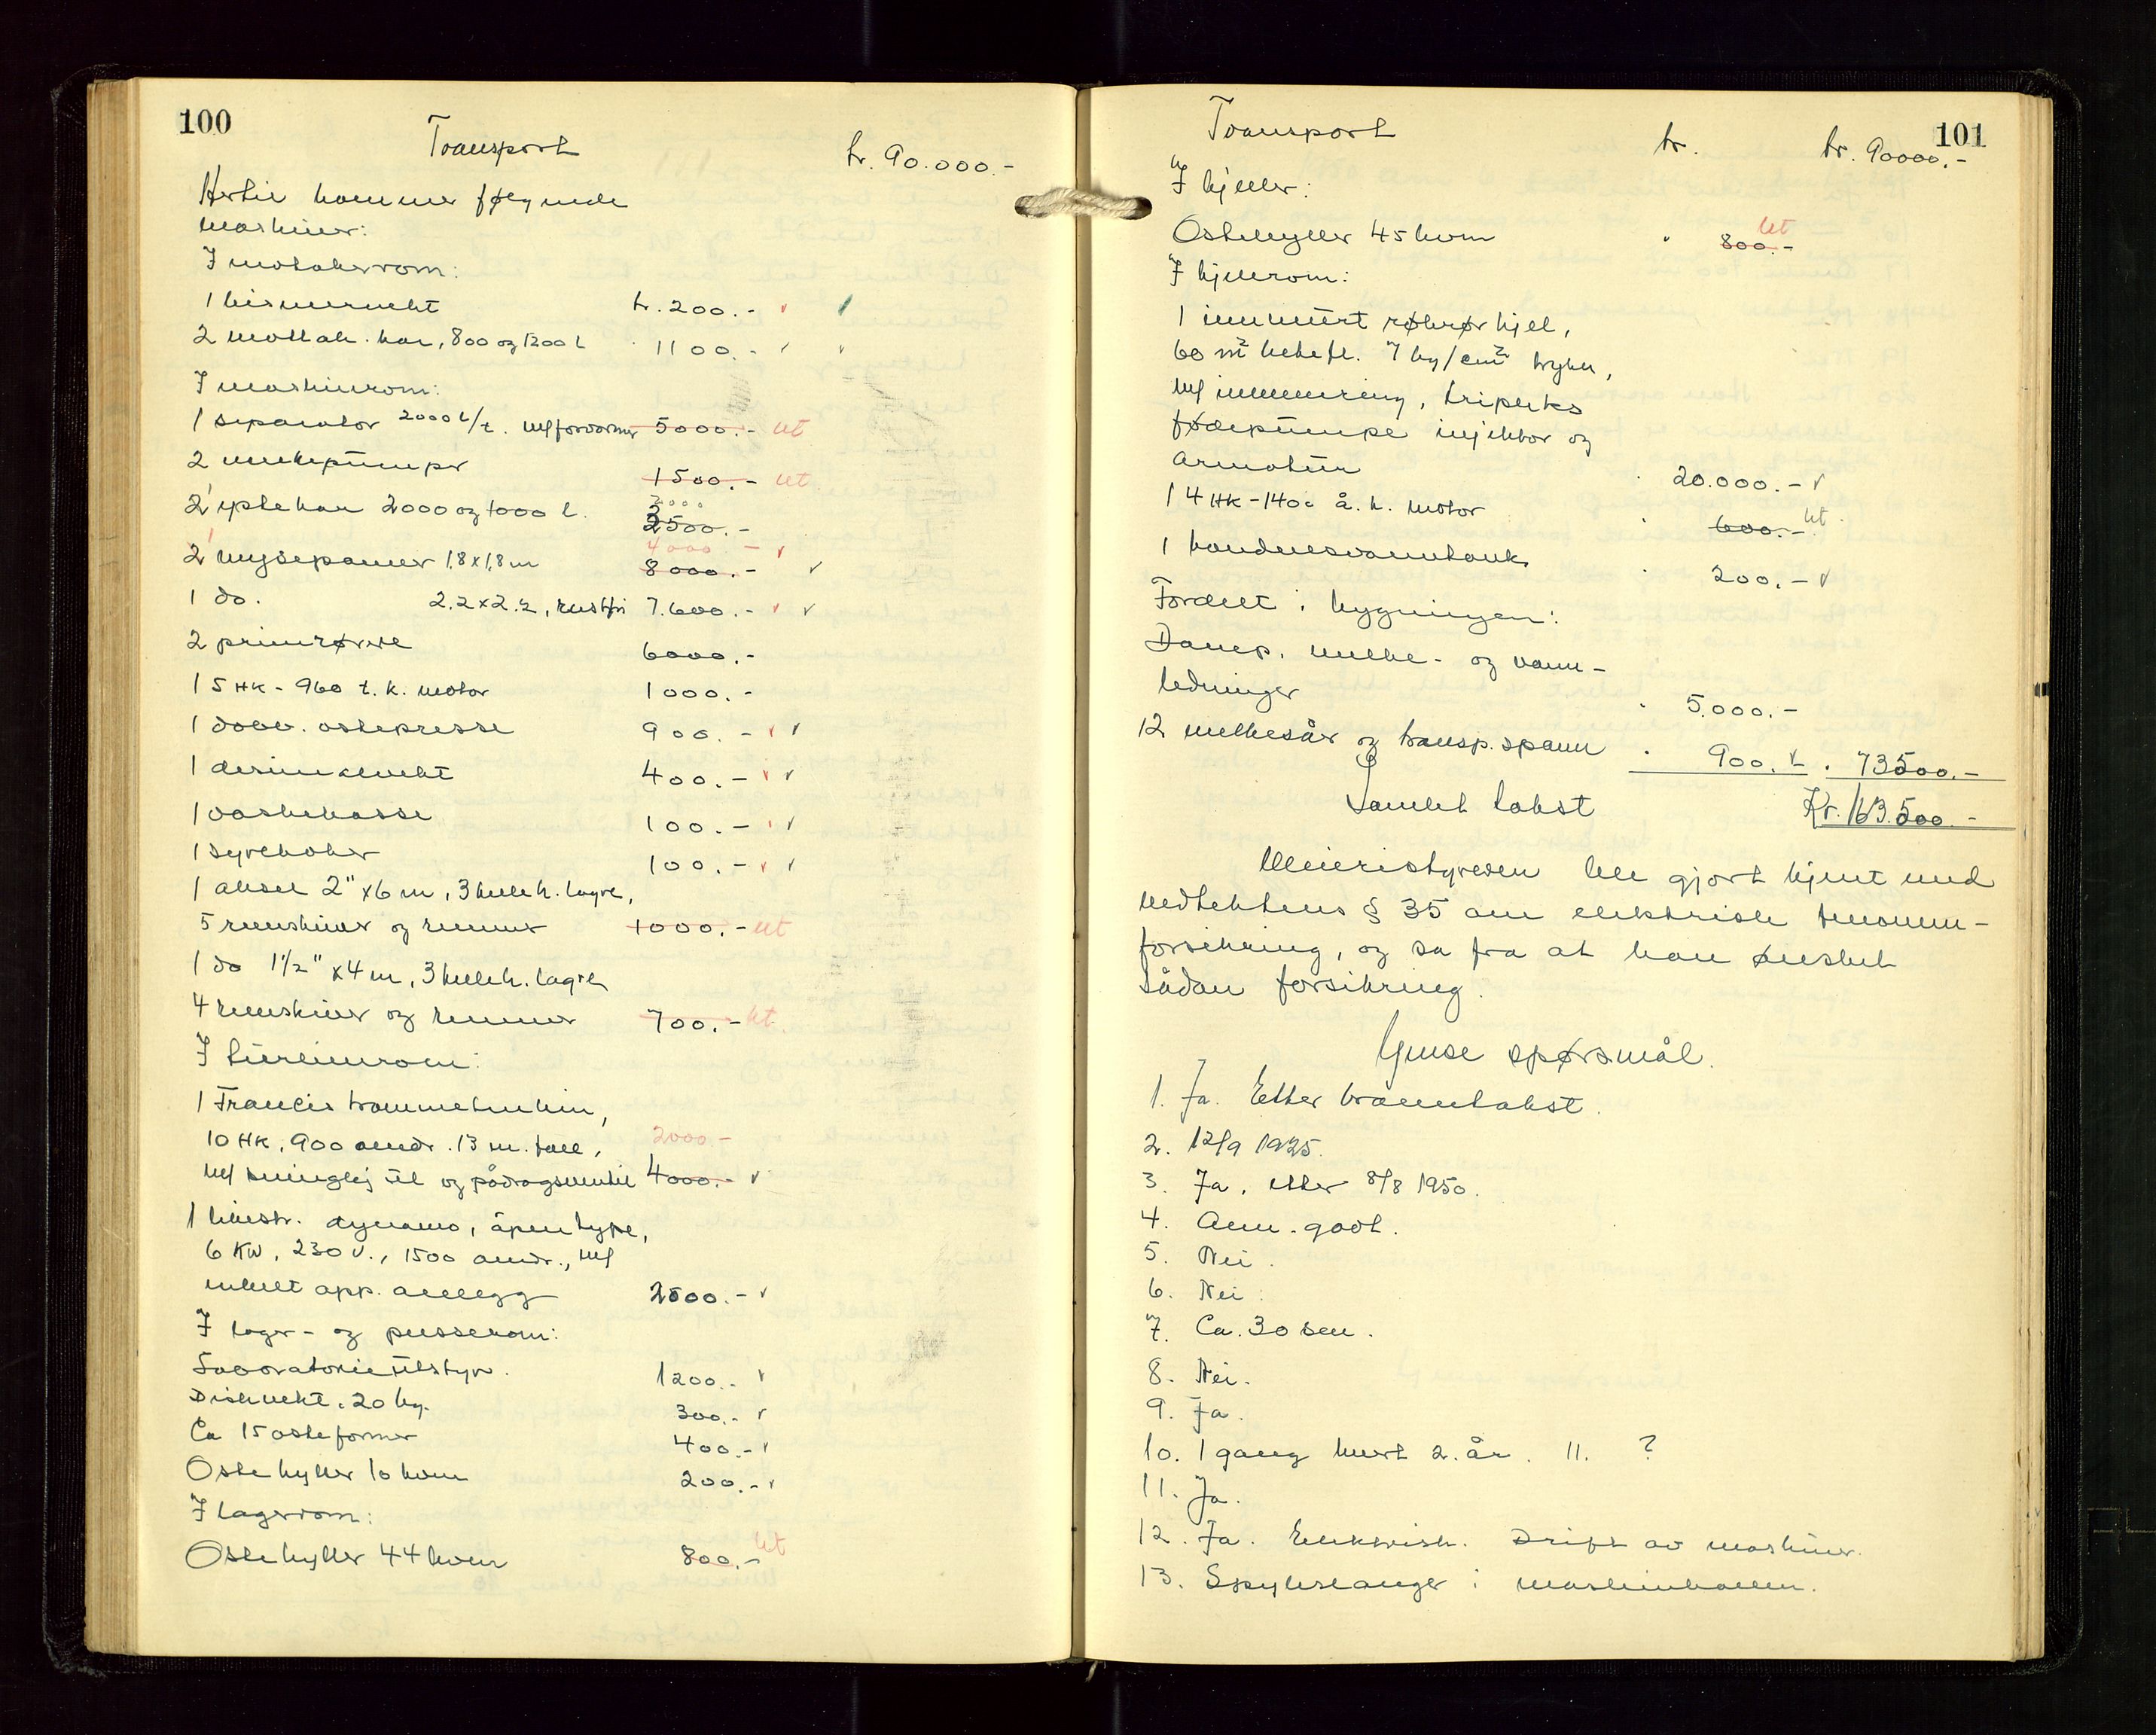 100
Transport kr. 90.000.-
Hertil kommer følgende
maskiner:
I mottakerrom:
1 bismervekt kr. 200.-
2 mottak. kar, 800 og 1200 l 1100.-
I maskinrom:
1 separator 2000 L/t. m/forvarmer 5000.- ut
2 melkepumper 1500.- ut
2 ystekar 2000 og 1000 l. 3000 2500.-
4000.-
2 mysepanner 1,8 x 1,8 m 8000.-
1 do. 2.2 x 2.2, rustfri 7.600.-
2 primrørere 6000.-
1 5 HK - 960 t. k. motor 1000.-
1 dobb. ostepresse 900.-
1 desimalvekt 400.-
1 vaskekasse 100.-
1 syrekoker 100.-
1 aksel 2" x 6 m, 3 kulel. lagre,
5 remskiver og remmer 1000.- ut
1 do 1 1/2" x 4 m, 3 kulel. lagre,
4 remskiver og remmer 700.- ut
I turbinrom:
1 Francis trommeturbin,
10 HK, 900 omdr. 13 m. fall, 2000.-
m/ svinghjul og pådragsventil 4000.-
1 likestr. dynamo, åpen type,
6 KW, 230 V., 1500 omdr., m/
enkelt app. anlegg 2500.-
I lager- og pusserom:
Laboratorieutstyr. 1200.-
Diskvekt. 20 kg. 300.-
Ca 15 osteformer 400.-
Ostehyller 10 kvm 200.-
I lagerrom:
Ostehyller 44 kvm 800.- ut
101
Transport kr. kr. 90000.-
I kjeller:
Ostehyller 45 kvm 800.- ut
I kjelrom:
1 innmurt røkrørkjel,
60 m² hetefl. 7 kg/cm² trykk,
m/ innmuring, tripleks
fødepumpe injektor og
armatur 20.000.-
1 4 HK - 1400 å. k. motor 600.- ut
1 kondensvanntank 200.-
Fordelt i bygningen:
Damp. melke- og vann-
ledninger 5.000.-
12 melkesår og transp. spann 900. 73500.-
Samlet takst Kr. 163.500.-
Meieristyreren ble gjort kjent med
vedtektens § 35 om elektrisk fenomen-
forsikring, og sa fra at han ønsket
sådan forsikring.
Ymse spørsmål.
1. Ja. Etter branntakst.
2. 12/9 1925.
3. Ja, etter 8/8 1950.
4. Ann. godt.
5. Nei.
6. Nei.
7. Ca. 30 sm.
8. Nei.
9. Ja.
10. 1 gang hvert 2. år. 11. ?
11. Ja.
12. Ja. Elektrisk. Drift av maskiner.
13. Spyleslanger i maskinhallen.